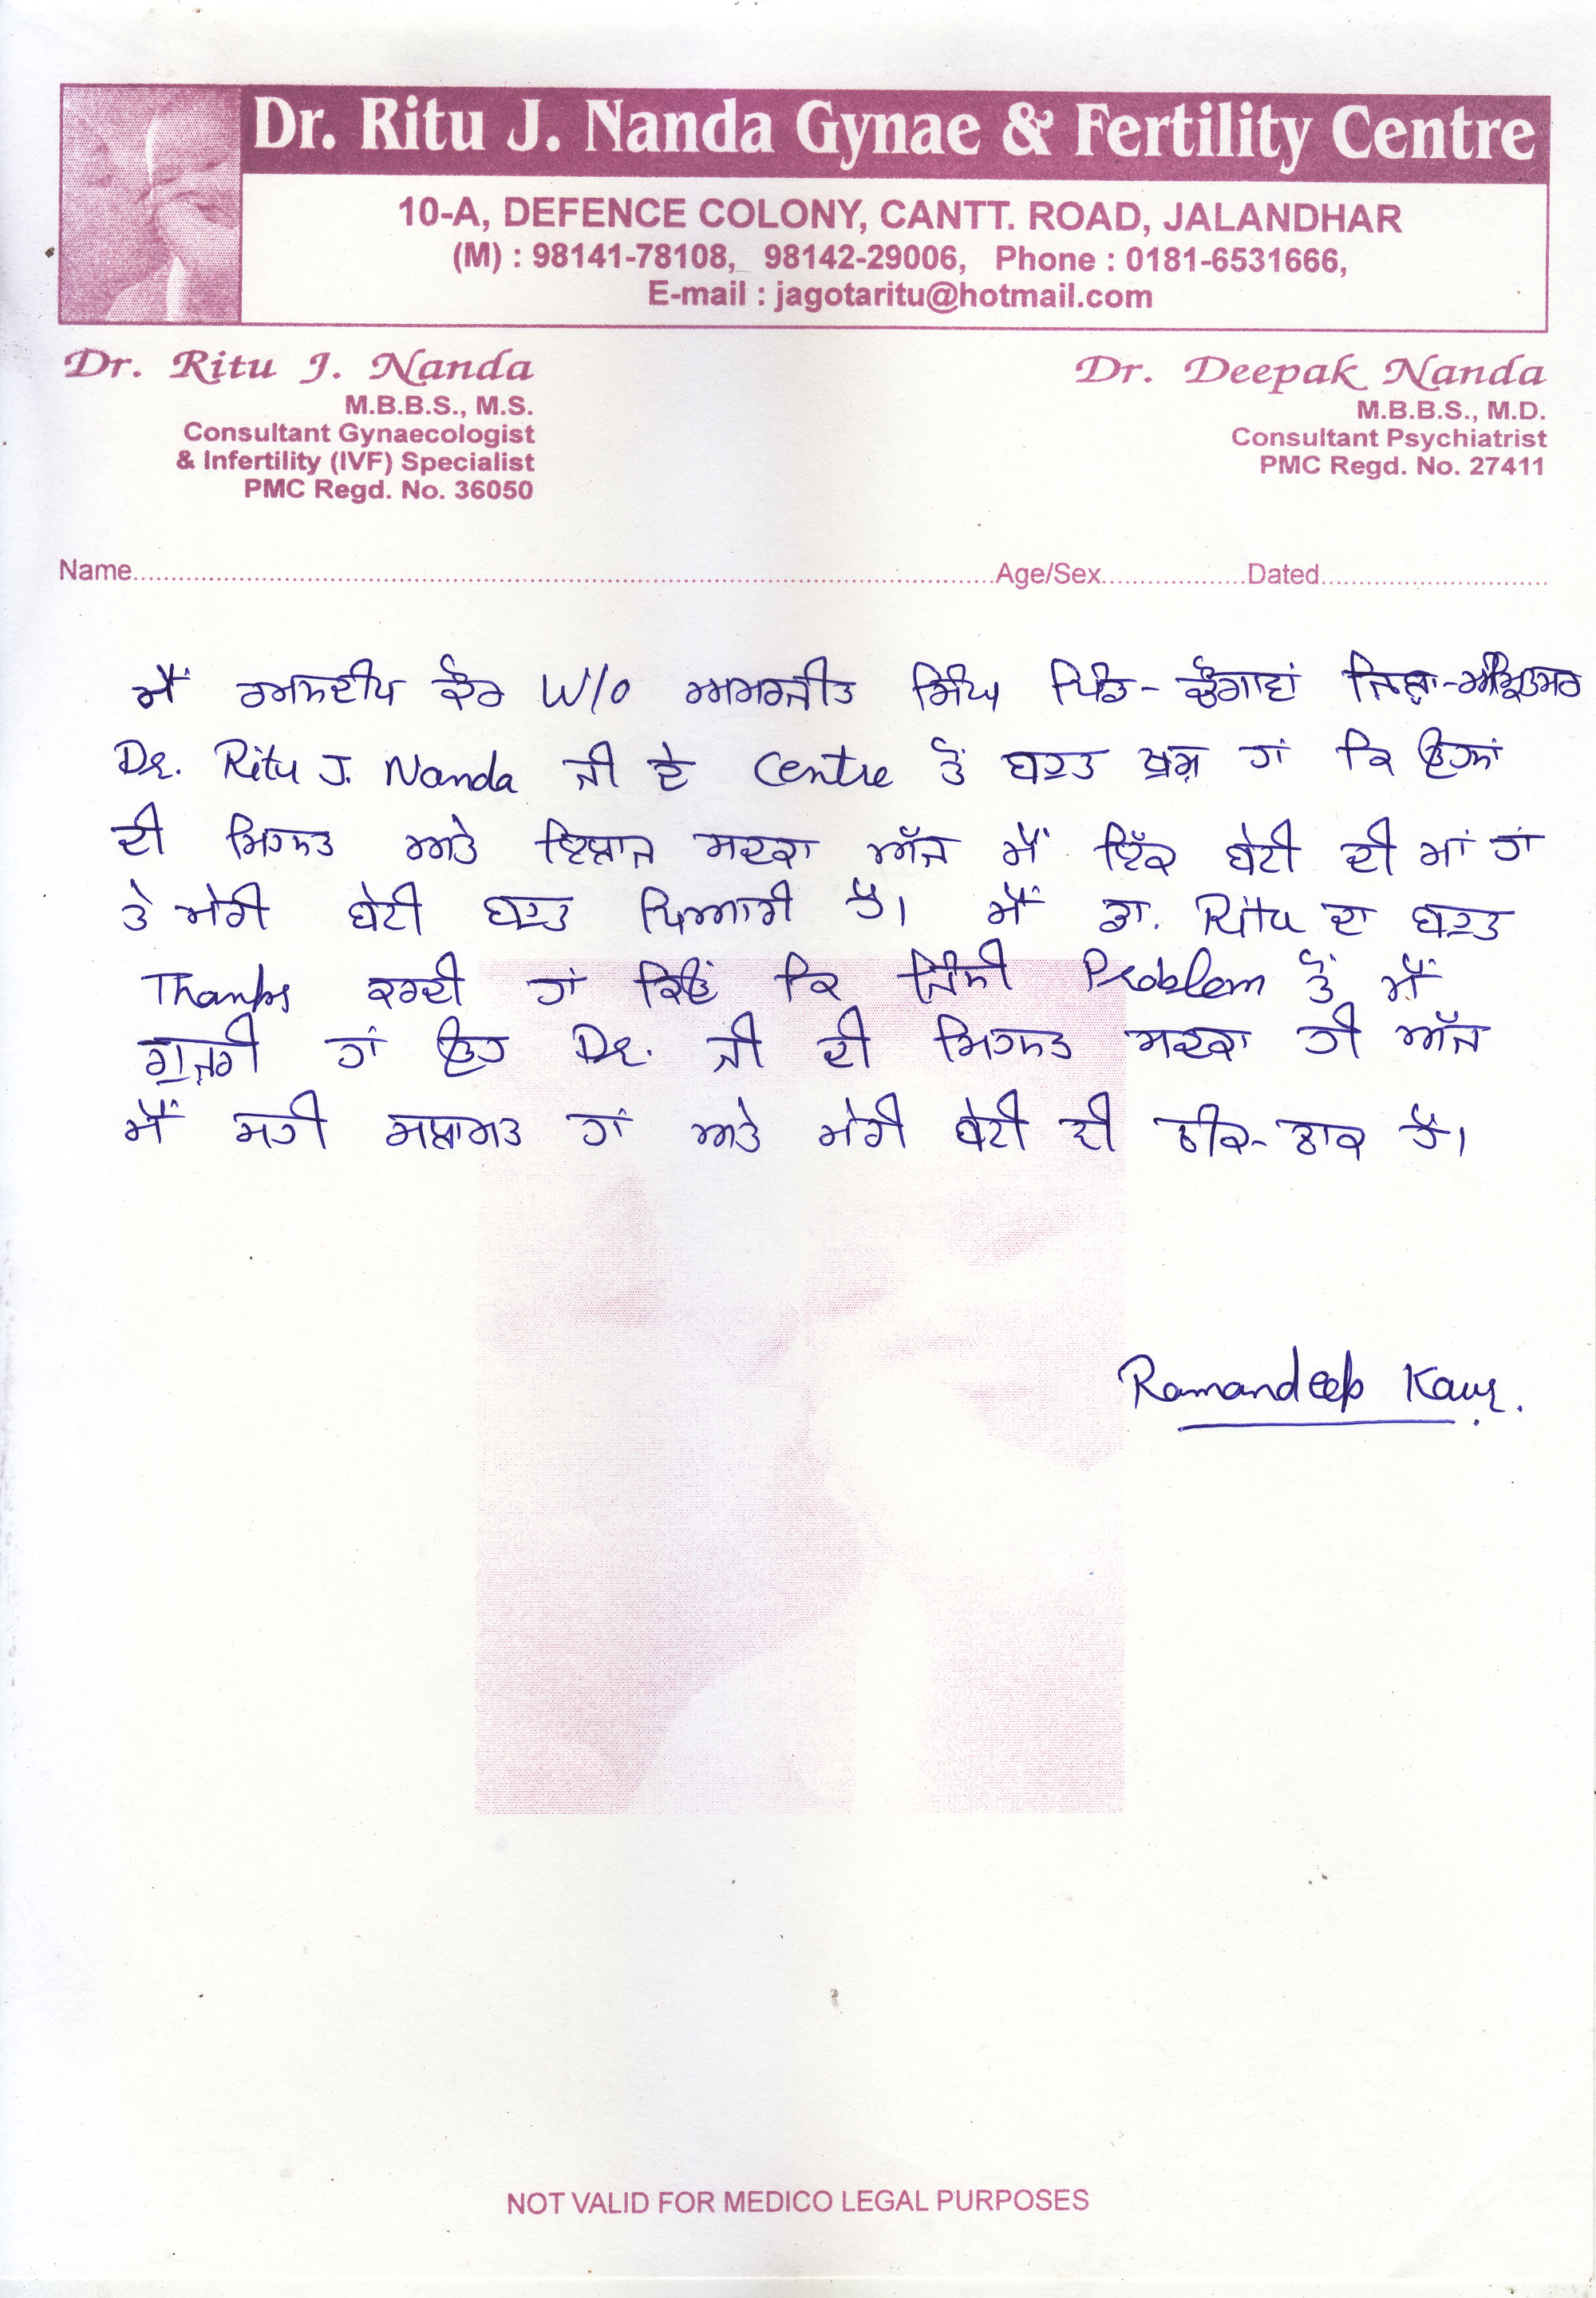 Dr. Ritu J. Nanda Gynae & Fertility Centre
10-A, DEFENCE COLONY, CANTT. ROAD, JALANDHAR
(M) : 98141-78108, 98142-29006, Phone : 0181-6531666,
E-mail : jagotaritu@hotmail.com
Dr. Ritu J. Nanda
M.B.B.S., M.S.
Consultant Gynaecologist
& Infertility (IVF) Specialist
PMC Regd. No. 36050
Dr. Deepak Nanda
M.B.B.S., M.D.
Consultant Psychiatrist
PMC Regd. No. 27411
Name Age/Sex Dated
ਮੈਂ ਰਮਨਦੀਪ ਕੌਰ W/o ਅਮਰਜੀਤ ਸਿੰਘ ਪਿੰਡ- ਚੌਗਾਵਾਂ ਜ਼ਿਲ੍ਹਾ-ਅੰਮ੍ਰਿਤਸਰ
Dr. Ritu J. Nanda ਜੀ ਦੇ Centre ਤੋਂ ਬਹੁਤ ਖੁਸ਼ ਹਾਂ ਕਿ ਉਹਨਾਂ
ਦੀ ਮਿਹਨਤ ਅਤੇ ਇਲਾਜ ਸਦਕਾ ਅੱਜ ਮੈਂ ਇੱਕ ਬੇਟੀ ਦੀ ਮਾਂ ਹਾਂ
ਤੇ ਮੇਰੀ ਬੇਟੀ ਬਹੁਤ ਪਿਆਰੀ ਹੈ। ਮੈਂ ਡਾ. Ritu ਦਾ ਬਹੁਤ
Thanks ਕਰਦੀ ਹਾਂ ਕਿਉਂ ਕਿ ਜਿੰਨੀ Problem ਤੋਂ ਮੈਂ
ਗੁਜ਼ਰੀ ਹਾਂ ਉਹ Dr. ਜੀ ਦੀ ਮਿਹਨਤ ਸਦਕਾ ਹੀ ਅੱਜ
ਮੈਂ ਸਹੀ ਸਲਾਮਤ ਹਾਂ ਅਤੇ ਮੇਰੀ ਬੇਟੀ ਵੀ ਠੀਕ-ਠਾਕ ਹੈ।
Ramandeep Kaur.
NOT VALID FOR MEDICO LEGAL PURPOSES